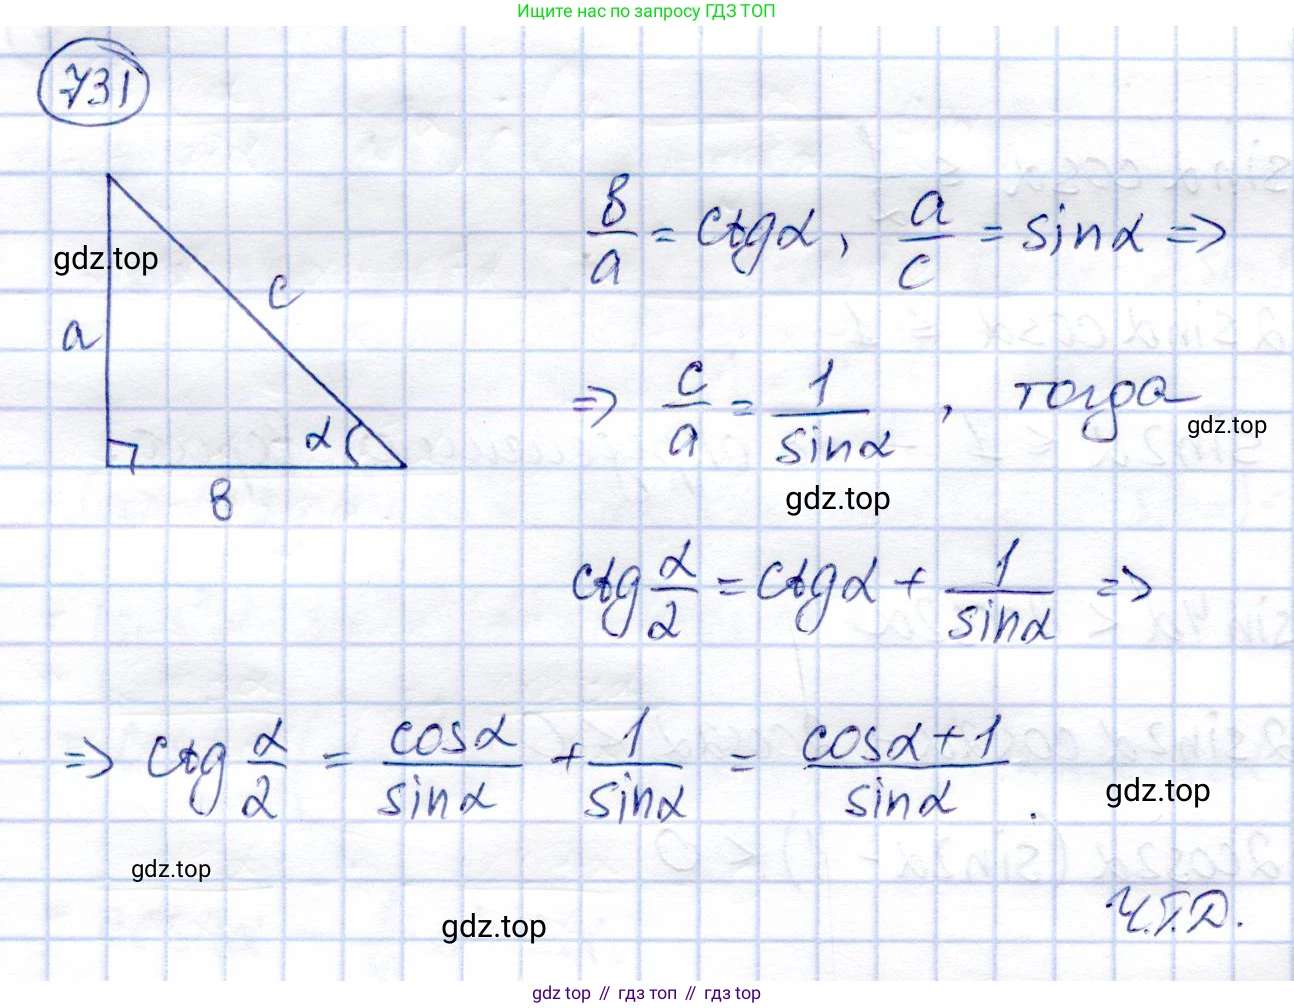 Ищите нас по запросу ГДЗ ТОП
731
gdz.top
a
c
α
в
в/a = ctgα, a/c = sinα =>
=> c/a = 1/sinα, тогда
gdz.top
gdz.top
ctg α/2 = ctgα + 1/sinα =>
=> ctg α/2 = cosα/sinα + 1/sinα = cosα+1/sinα.
gdz.top
gdz.top
gdz.top
Ч.Т.Д.
gdz top // гдз топ // гдз top